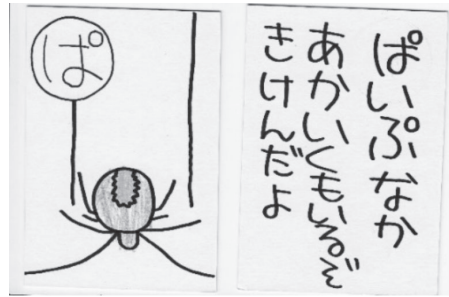 ぱ
ぱいぷなか
あかいくもいるぞ
きけんだよ